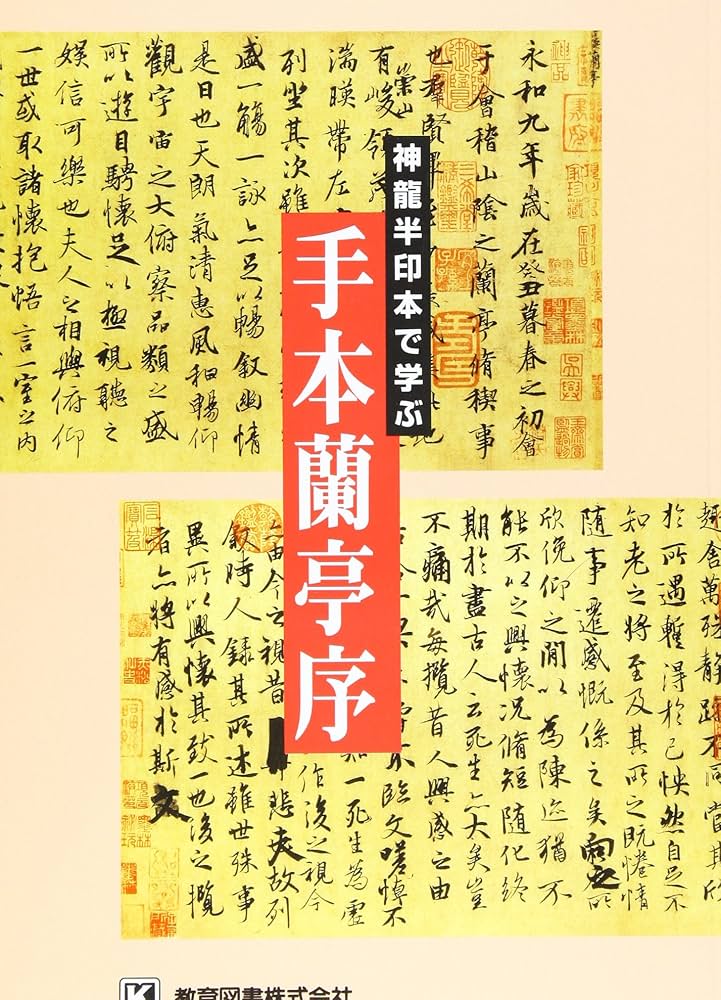 神龍半印本で学ぶ
手本蘭亭序
永和九年歳在癸丑暮春之初會
于會稽山陰之蘭亭脩稧事
也羣賢
有崇山峻領茂
湍暎帶左
列坐其次雖
盛一觴一詠亦足以暢叙幽情
是日也天朗氣清惠風和暢仰
觀宇宙之大俯察品類之盛
所以遊目騁懷足以極視聽之
娛信可樂也夫人之相與俯仰
一世或取諸懷抱悟言一室之内
趣舍萬殊静躁不同當其欣
於所遇蹔得於己怏然自足不
知老之將至及其所之既惓情
隨事遷感慨係之矣向之所
欣俛仰之閒以為陳迹猶不
能不以之興懷况脩短隨化終
期於盡古人云死生亦大矣豈
不痛哉每攬昔人興感之由
臨文嗟悼不
知一死生為虛
作後之視今
由今之視昔悲夫故列
叙時人錄其所述雖世殊事
異所以興懷其致一也後之攬
者亦將有感於斯文
K 教育図書株式会社